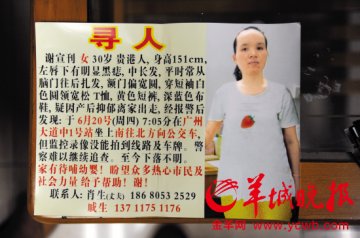 寻人
谢宣刊 女 30岁 贵港人，身高151cm，
左唇下有明显黑痣，中长发，平时常从
脑门往后扎发，额门偏宽圆，穿短袖白
色圆领宽松T恤，黄色短裤，深蓝色布
鞋，疑因产后抑郁离家出走，经报警后
发现：于6月20号(周四)7:05分在广州
大道中1号站坐上南往北方向公交车，
但监控录像没能拍到线路及车牌。警
察难以继续追查。至今下落不明。
家有待哺幼婴！盼望众多热心市民及
社会力量给予帮助！谢！
联系人：肖生(丈夫) 186 8053 2529
戚生 137 1175 1176
羊城晚报
金羊网 www.ycwb.com